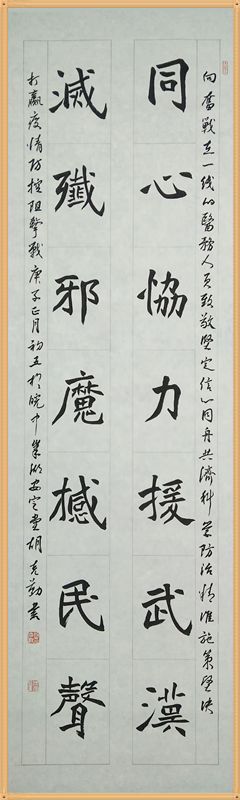 向奮戰在一线的醫務人員致敬堅定信心同舟共濟科學防治精准施策堅决
同心協力援武漢
滅殲邪魔撼民聲
打贏疫情防控阻擊戰庚子正月初五於皖中巢湖安定堂胡克勤書